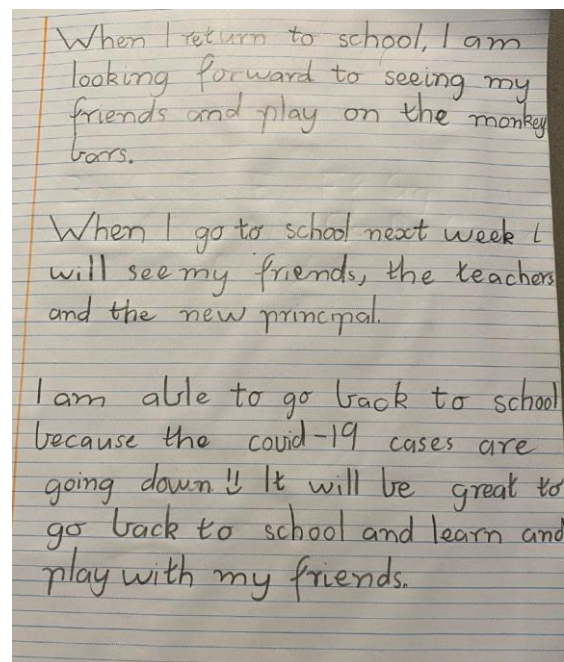 When I return to school, I am
looking forward to seeing my
friends and play on the monkey
bars.
When I go to school next week I
will see my friends, the teachers
and the new principal.
I am able to go back to school
because the covid-19 cases are
going down !! It will be great to
go back to school and learn and
play with my friends.